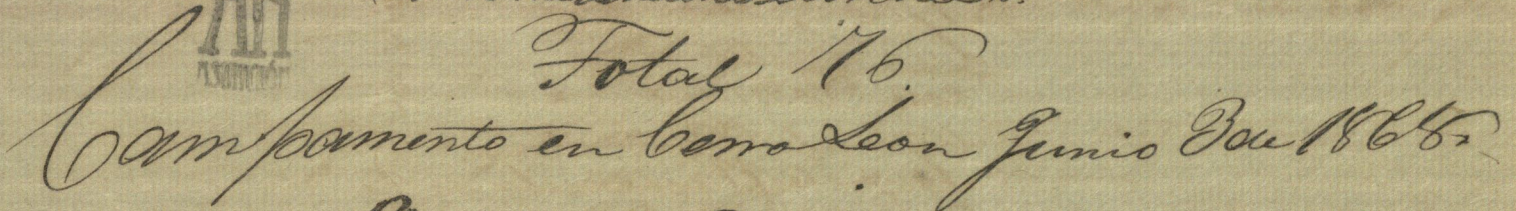 AA
ASUNCIÓN
Total 76.
Campamento en Cerro Leon Junio 3 de 1868.